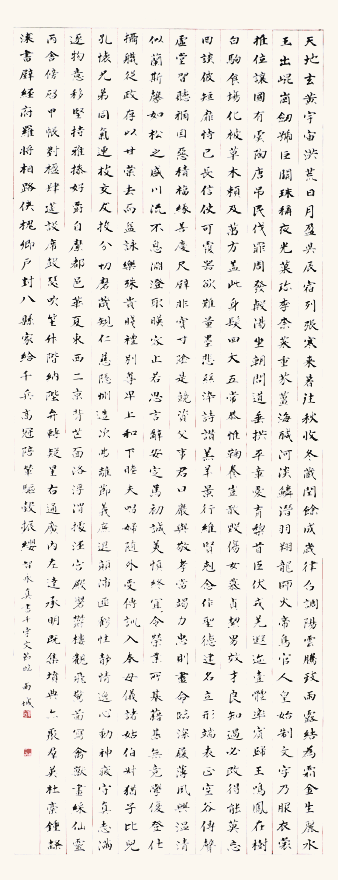 天地玄黃宇宙洪荒日月盈昃辰宿列張寒来暑往秋收冬藏閏餘成歲律召調陽雲騰致雨露結為霜金生麗水
玉出崐崗劍號巨闕珠稱夜光菓珍李柰菜重芥薑海醎河淡鱗潛羽翔龍師火帝鳥官人皇始制文字乃服衣裳
推位讓國有虞陶唐弔民伐罪周發殷湯坐朝問道垂拱平章愛育黎首臣伏戎羌遐迩壹體率賓歸王鳴鳳在樹
白駒食場化被草木賴及萬方蓋此身髮四大五常恭惟鞠養豈敢毀傷女慕貞潔男效才良知過必改得能莫忘
罔談彼短靡恃己長信使可覆器欲難量墨悲絲染詩讚羔羊景行維賢剋念作聖德建名立形端表正空谷傳聲
虛堂習聽禍因惡積福緣善慶尺璧非寶寸陰是競資父事君曰嚴與敬孝當竭力忠則盡命臨深履薄夙興溫清
似蘭斯馨如松之盛川流不息淵澄取暎容止若思言辭安定篤初誠美慎終宜令榮業所基藉甚無竟學優登仕
攝職從政存以甘棠去而益詠樂殊貴賤禮別尊卑上和下睦夫唱婦隨外受傅訓入奉母儀諸姑伯叔猶子比兒
孔懷兄弟同氣連枝交友投分切磨箴規仁慈隱惻造次弗離節義廉退顛沛匪虧性靜情逸心動神疲守真志滿
逐物意移堅持雅操好爵自縻都邑華夏東西二京背芒面洛浮渭據涇宮殿磐欝樓觀飛驚圖寫禽獸畫綵仙靈
丙舍傍啓甲帳對楹肆筵設席鼓瑟吹笙升階納陛弁轉疑星右通廣內左達承明既集墳典亦聚群英杜稾鍾隸
漆書壁經府羅將相路俠槐卿戶封八縣家給千兵高冠陪輦驅轂振纓 智永真書千字文節臨